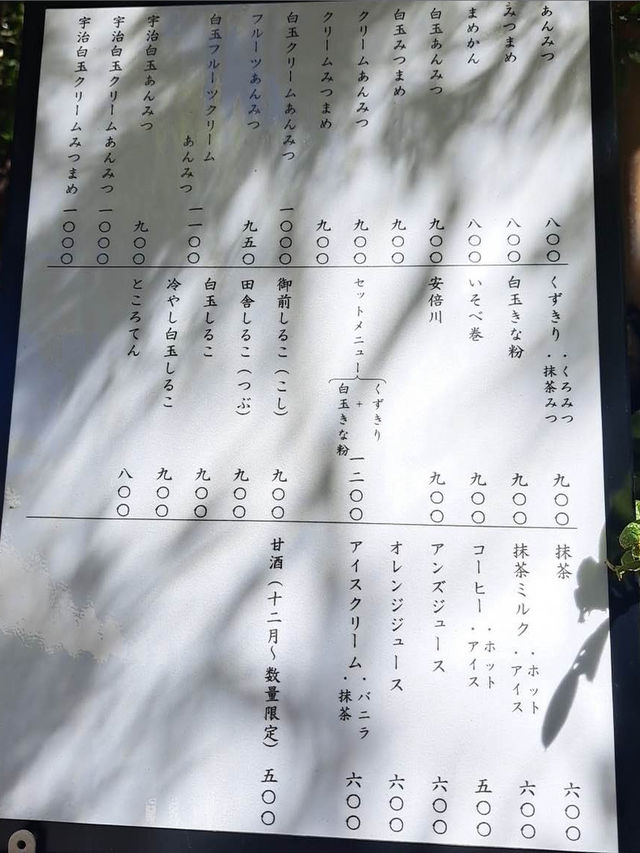 あんみつ 八〇〇
みつまめ 八〇〇
まめかん 八〇〇
白玉あんみつ 九〇〇
白玉みつまめ 九〇〇
クリームあんみつ 九〇〇
クリームみつまめ 九〇〇
白玉クリームあんみつ 一〇〇〇
フルーツあんみつ 九五〇
白玉フルーツクリーム
あんみつ 一一〇〇
宇治白玉あんみつ 九〇〇
宇治白玉クリームあんみつ 一〇〇〇
宇治白玉クリームみつまめ 一〇〇〇
くずきり ・くろみつ
・抹茶みつ 九〇〇
白玉きな粉 九〇〇
いそべ巻 九〇〇
安倍川 九〇〇
セットメニュー くずきり
+
白玉きな粉 一二〇〇
御前しるこ（こし） 九〇〇
田舎しるこ（つぶ） 九〇〇
白玉しるこ 九〇〇
冷やし白玉しるこ 九〇〇
ところてん 八〇〇
抹茶 六〇〇
抹茶ミルク ・ホット
・アイス 六〇〇
コーヒー ・ホット
・アイス 五〇〇
アンズジュース 六〇〇
オレンジジュース 六〇〇
アイスクリーム ・バニラ
・抹茶 六〇〇
甘酒（十二月〜数量限定） 五〇〇